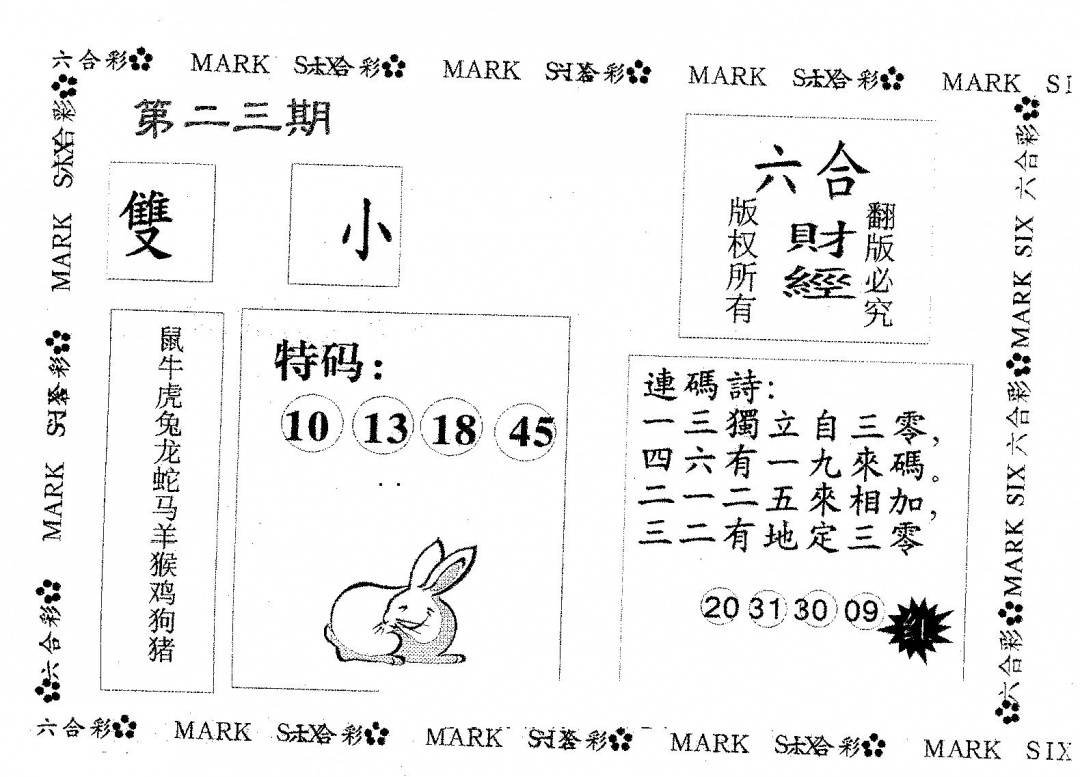 六合彩 MARK SIX六合彩 MARK SIX六合彩 MARK SIX六合彩 MARK SIX
第二三期
雙
小
六合
財經
版权所有
翻版必究
鼠牛虎兔龙蛇马羊猴鸡狗猪
特码：
10 13 18 45
連碼詩：
一三獨立自三零，
四六有一九來碼。
二一二五來相加，
三二有地定三零
20 31 30 09
红
MARK SIX六合彩 MARK SIX六合彩 六合彩
六合彩 MARK SIX 六合彩 MARK SIX 六合彩 MARK SIX 六合彩
六合彩 MARK SIX六合彩 MARK SIX六合彩 MARK SIX六合彩 MARK SIX